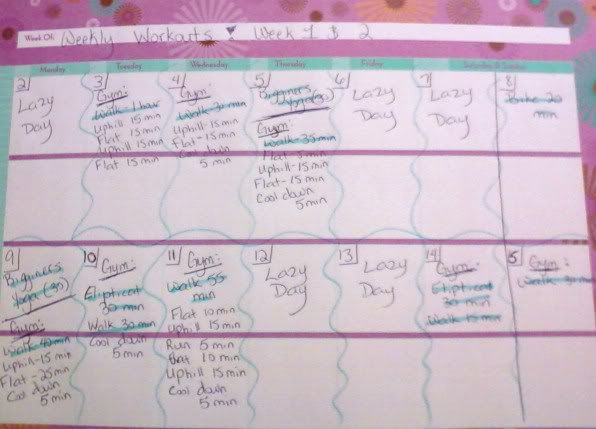 Week Of: Weekly Workouts! Week 1 & 2
Monday Tuesday Wednesday Thursday Friday Saturday & Sunday
2
Lazy
Day
3
Gym:
Walk 1 hour
Uphill 15 min
Flat 15 min
Uphill 15 min
Flat 15 min
4
Gym:
Walk 30 min
Uphill-15 min
Flat-15 min
Cool down
5 min
5
Bigginers
Yoga (30)
Gym:
Walk-35 min
Flat 5 min
Uphill-15 min
Flat-15 min
Cool down
5 min
6
Lazy
Day
7
Lazy
Day
8
Bike 20
min
9
Bigginers
Yoga (30)
Gym:
Walk 40 min
Uphill-15 min
Flat-25 min
Cool down
5 min
10
Gym:
Elipticat
30 min
Walk 30 min
Cool down
5 min
11
Gym:
Walk 55
min
Flat 10 min
Uphill 15 min
Run 5 min
Flat 10 min
Uphill 15 min
Cool down
5 min
12
Lazy
Day
13
Lazy
Day
14
Gym:
Elipticat
30 min
Walk 15 min
15
Gym:
Walk 30 min